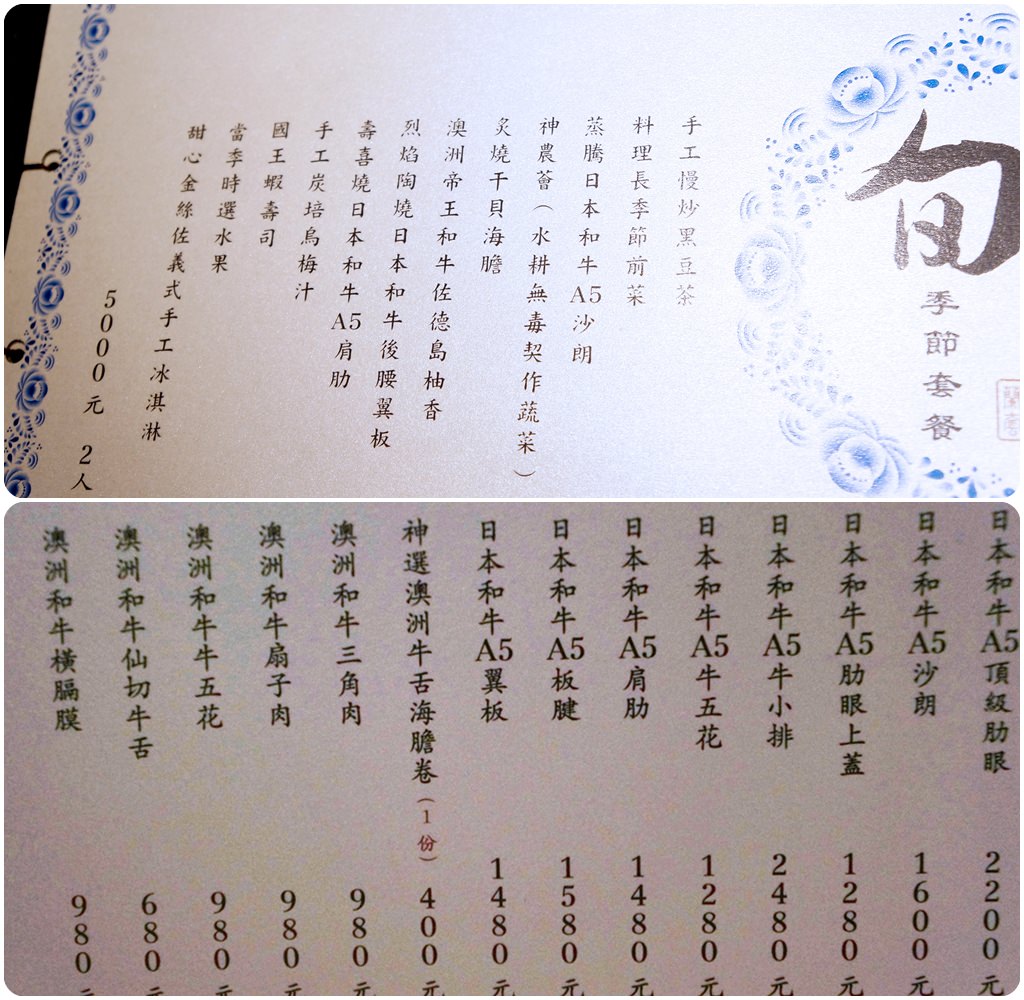 旬
季節套餐
手工慢炒黑豆茶
料理長季節前菜
蒸騰日本和牛A5沙朗
神農薈（水耕無毒契作蔬菜）
炙燒干貝海膽
澳洲帝王和牛佐德島柚香
烈焰陶燒日本和牛後腰翼板
壽喜燒日本和牛A5肩肋
手工炭培烏梅汁
國王蝦壽司
當季時選水果
甜心金絲佐義式手工冰淇淋
5000元 2人
日本和牛A5頂級肋眼 2200元
日本和牛A5沙朗 1600元
日本和牛A5肋眼上蓋 1280元
日本和牛A5牛小排 2480元
日本和牛A5牛五花 1280元
日本和牛A5肩肋 1480元
日本和牛A5板腱 1580元
日本和牛A5翼板 1480元
神選澳洲牛舌海膽卷（1份） 400元
澳洲和牛三角肉 980元
澳洲和牛扇子肉 980元
澳洲和牛牛五花 980元
澳洲和牛仙切牛舌 680元
澳洲和牛橫膈膜 980元